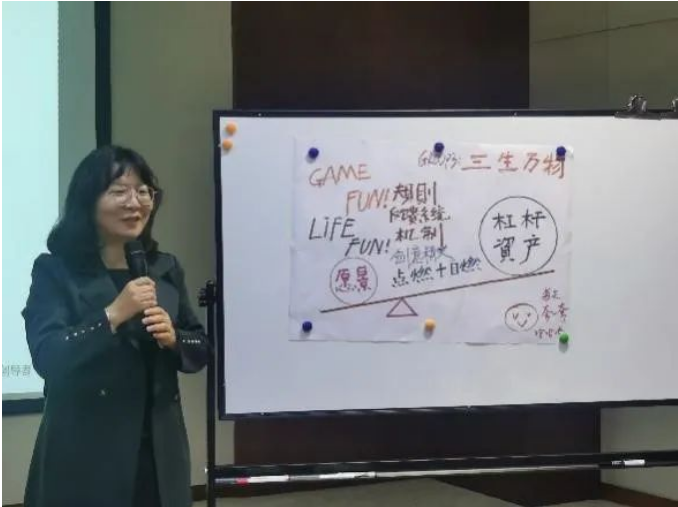 GROUP3: 三生万物
GAME
FUN! 规则
反馈系统
LiFE
FUN! 机制
创意精火
点燃＋自燃
愿景
杠杆
資产